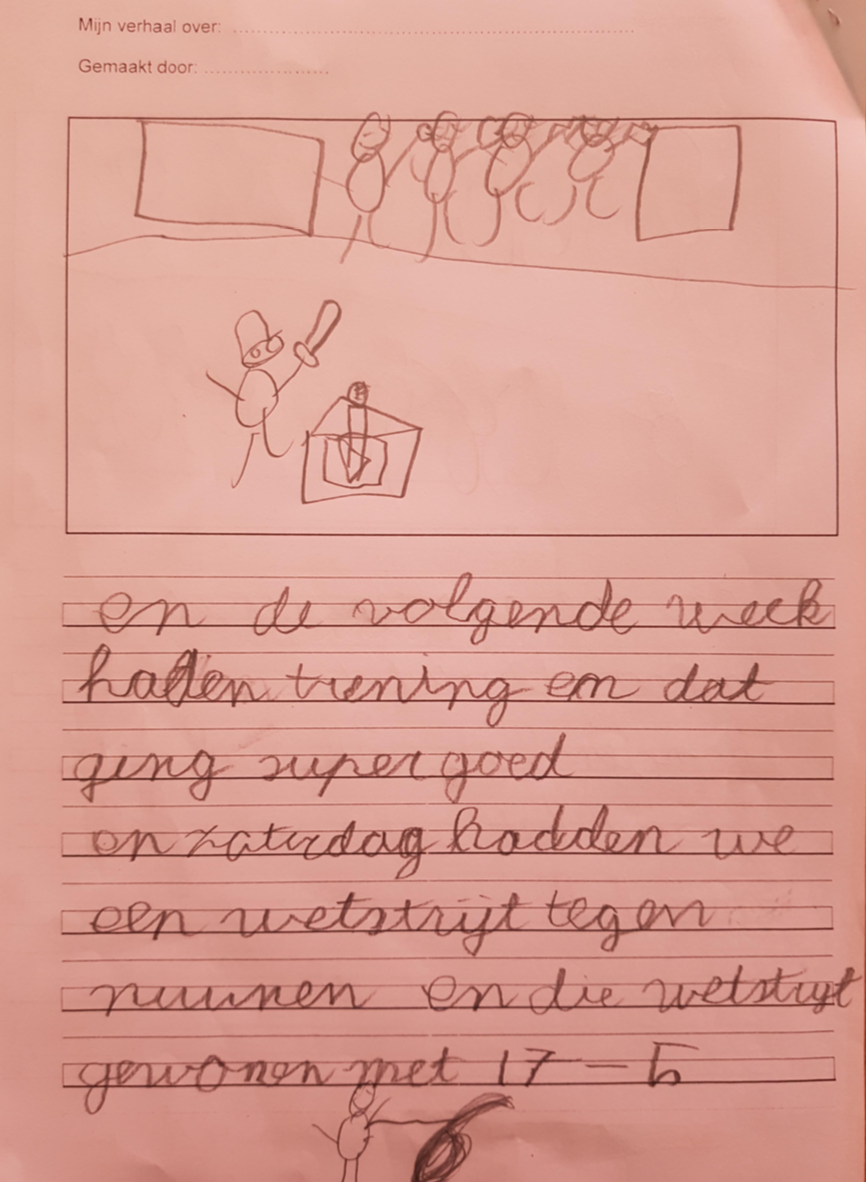 Mijn verhaal over: ........................................................................
Gemaakt door: ......................
en de volgende week
hadden trening en dat
ging super goed
en zaterdag hadden we
een wetstrijt tegen
nuunen en die wetstryt
gewonen met 17 - 5